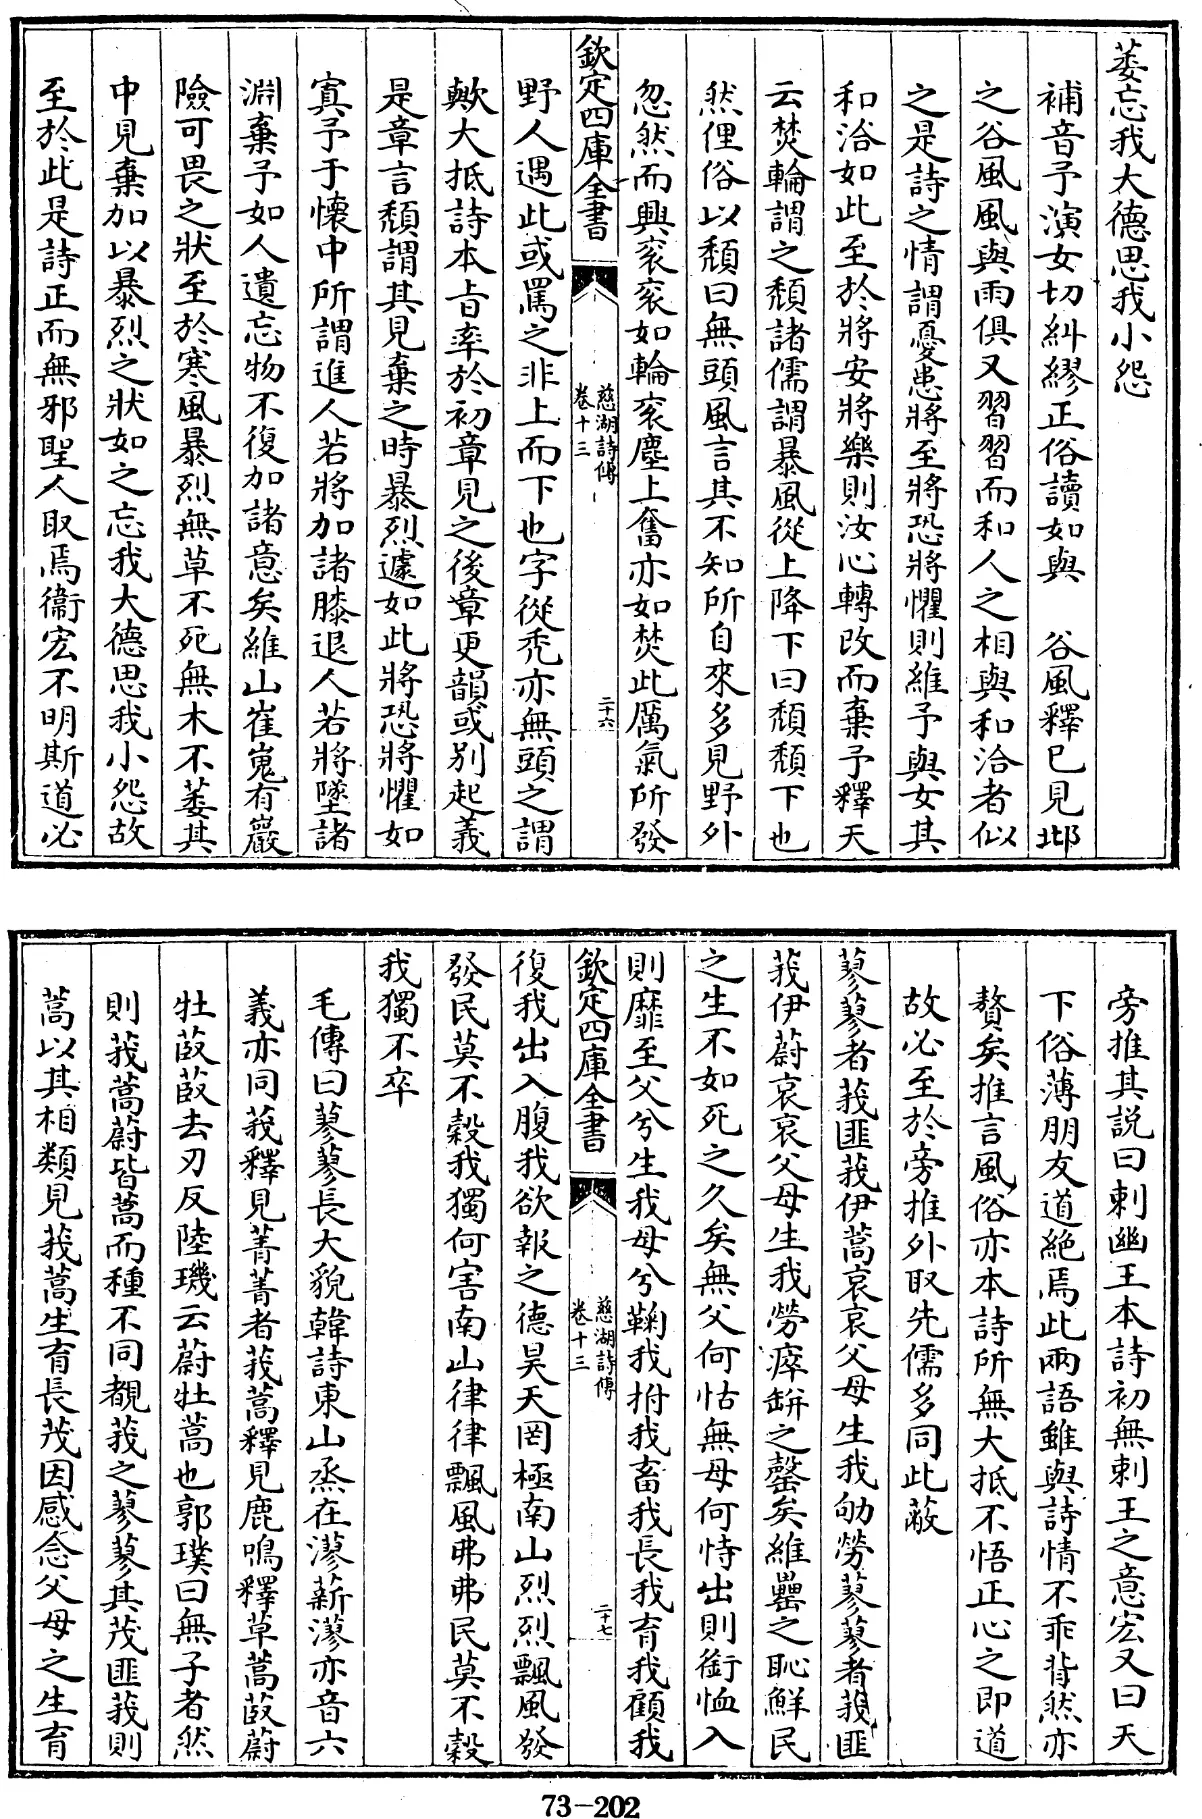 萎忘我大德思我小怨
補音予演女切糾繆正俗讀如與　谷風釋已見邶
之谷風風與雨俱又習習而和人之相與和洽者似
之是詩之情謂憂患將至將恐將懼則維予與女其
和洽如此至於將安將樂則汝心轉改而棄予釋天
云焚輪謂之頹諸儒謂暴風從上降下曰頹頹下也
然俚俗以頹曰無頭風言其不知所自來多見野外
忽然而興衮衮如輪衮塵上奮亦如焚此厲氣所發
欽定四庫全書
慈湖詩傳
卷十三
二十六
野人遇此或罵之非上而下也字從禿亦無頭之謂
歟大抵詩本㫖率於初章見之後章更韻或别起義
是章言頹謂其見棄之時暴烈遽如此將恐將懼如
寘予于懷中所謂進人若將加諸膝退人若將墜諸
淵棄予如人遺忘物不復加諸意矣維山崔嵬有巖
險可畏之狀至於寒風暴烈無草不死無木不萎其
中見棄加以暴烈之狀如之忘我大德思我小怨故
至於此是詩正而無邪聖人取焉衞宏不明斯道必
旁推其説曰刺幽王本詩初無刺王之意宏又曰天
下俗薄朋友道絶焉此兩語雖與詩情不乖背然亦
贅矣推言風俗亦本詩所無大抵不悟正心之即道
故必至於旁推外取先儒多同此蔽
蓼蓼者莪匪莪伊蒿哀哀父母生我劬勞蓼蓼者莪匪
莪伊蔚哀哀父母生我勞瘁缾之罄矣維罍之恥鮮民
之生不如死之久矣無父何怙無母何恃出則銜恤入
則靡至父兮生我母兮鞠我拊我畜我長我育我顧我
欽定四庫全書
慈湖詩傳
卷十三
二十七
復我出入腹我欲報之德昊天罔極南山烈烈飄風發
發民莫不穀我獨何害南山律律飄風弗弗民莫不穀
我獨不卒
毛傳曰蓼蓼長大貌韓詩東山烝在蓼薪蓼亦音六
義亦同莪釋見菁菁者莪蒿釋見鹿鳴釋草蒿菣蔚
牡菣菣去刃反陸璣云蔚牡蒿也郭璞曰無子者然
則莪蒿蔚皆蒿而種不同覩莪之蓼蓼其茂匪莪則
蒿以其相類見莪蒿生育長茂因感念父母之生育
73-202